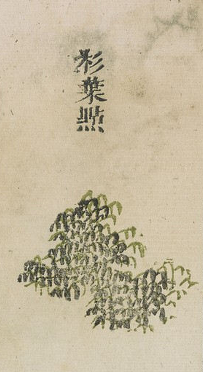 杉葉點